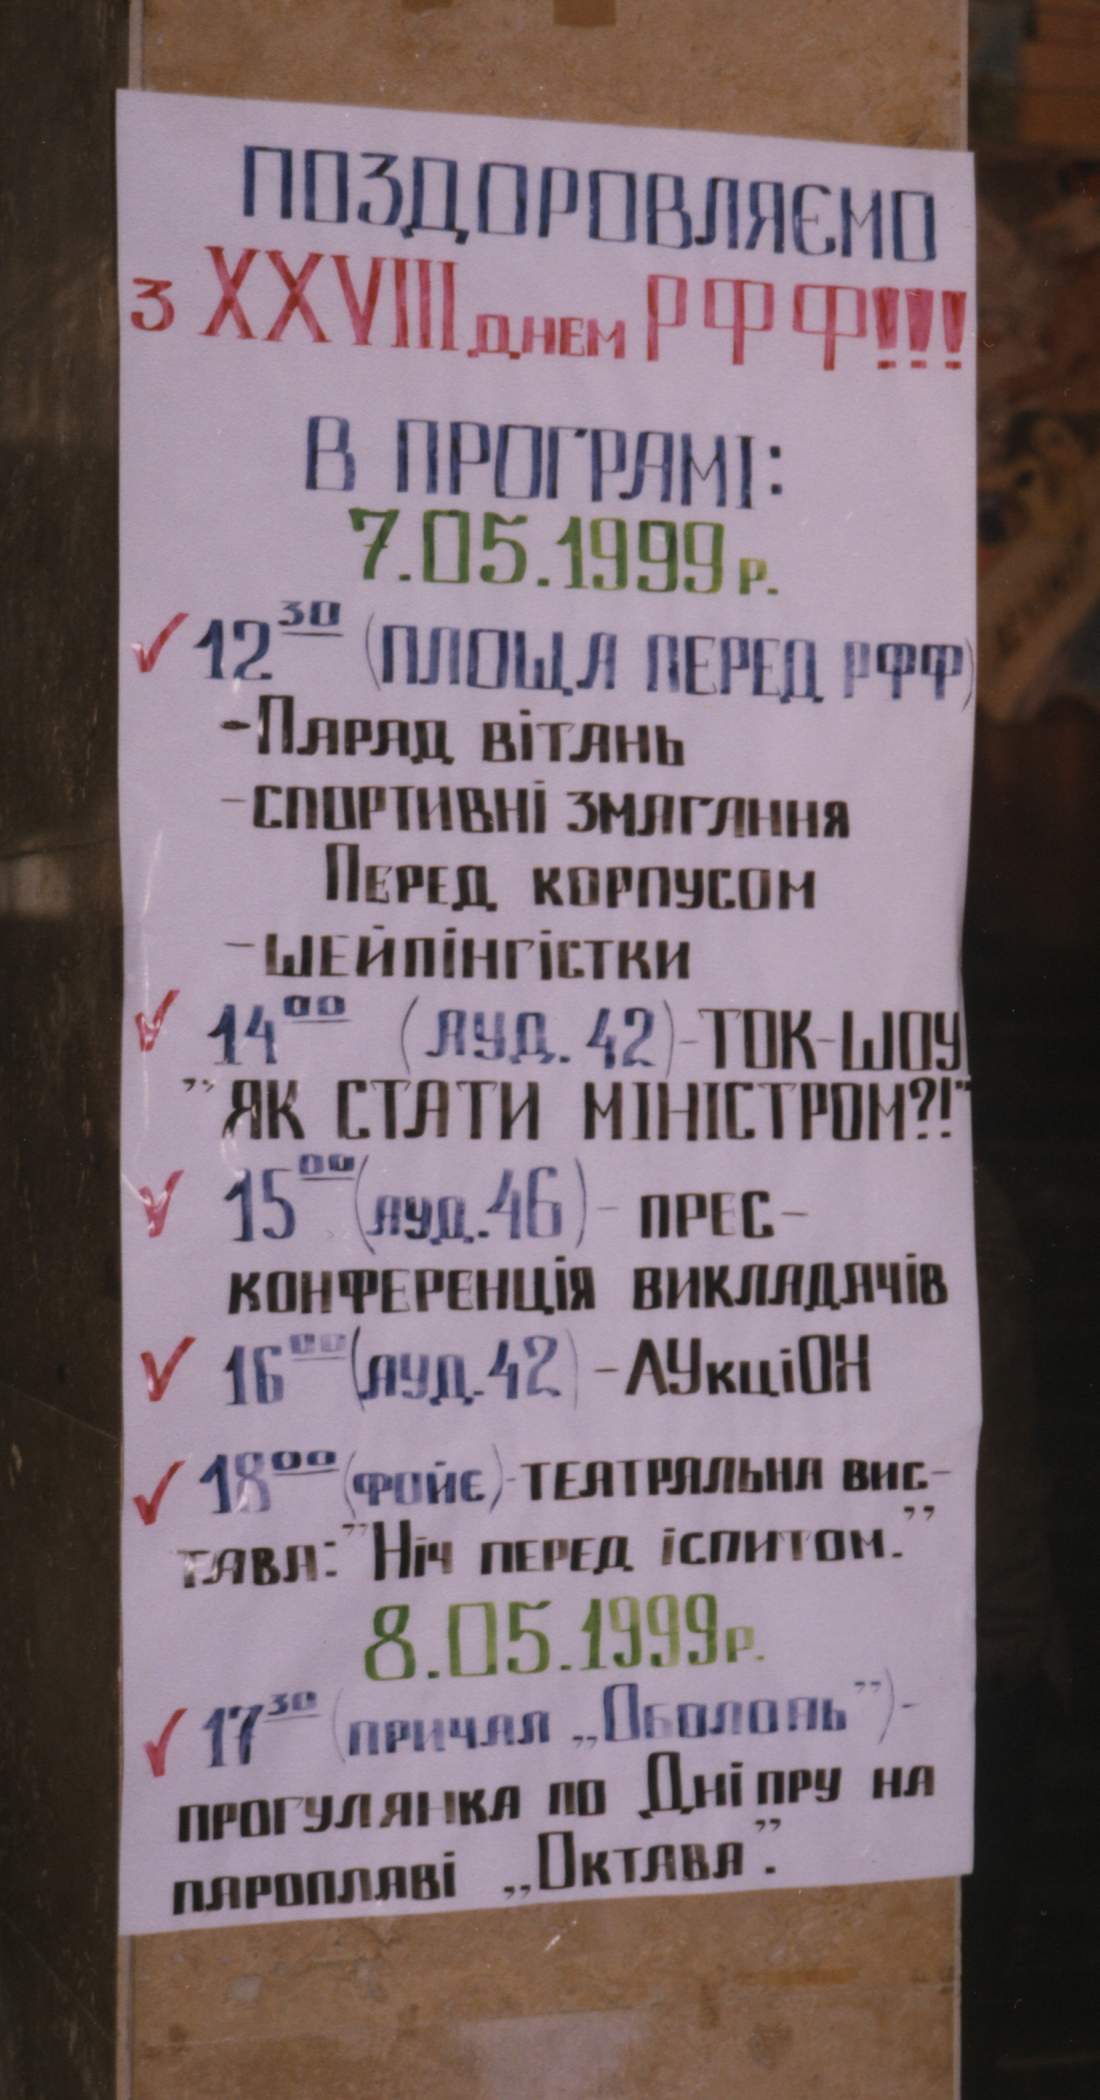 ПОЗДОРОВЛЯЄМО
З XXVIII ДНЕМ РФФ!!!
В ПРОГРАМІ:
7.05.1999 р.
✓ 12³⁰ (ПЛОЩА ПЕРЕД РФФ)
-ПАРАД ВІТАНЬ
-СПОРТИВНІ ЗМАГАННЯ
ПЕРЕД КОРПУСОМ
-ШЕЙПІНГІСТКИ
✓ 14⁰⁰ (АУД. 42)-ТОК-ШОУ
"ЯК СТАТИ МІНІСТРОМ?!"
✓ 15⁰⁰ (АУД.46)- ПРЕС-
КОНФЕРЕНЦІЯ ВИКЛАДАЧІВ
✓ 16⁰⁰ (АУД.42) -АУкціОН
✓ 18⁰⁰ (ФОЙЄ)-ТЕАТРАЛЬНА ВИС-
ТАВА: "НІЧ ПЕРЕД ІСПИТОМ."
8.05.1999р.
✓ 17³⁰ (ПРИЧАЛ „ОБОЛОНЬ")-
ПРОГУЛЯНКА ПО ДНІПРУ НА
ПАРОПЛАВІ „ОКТАВА".